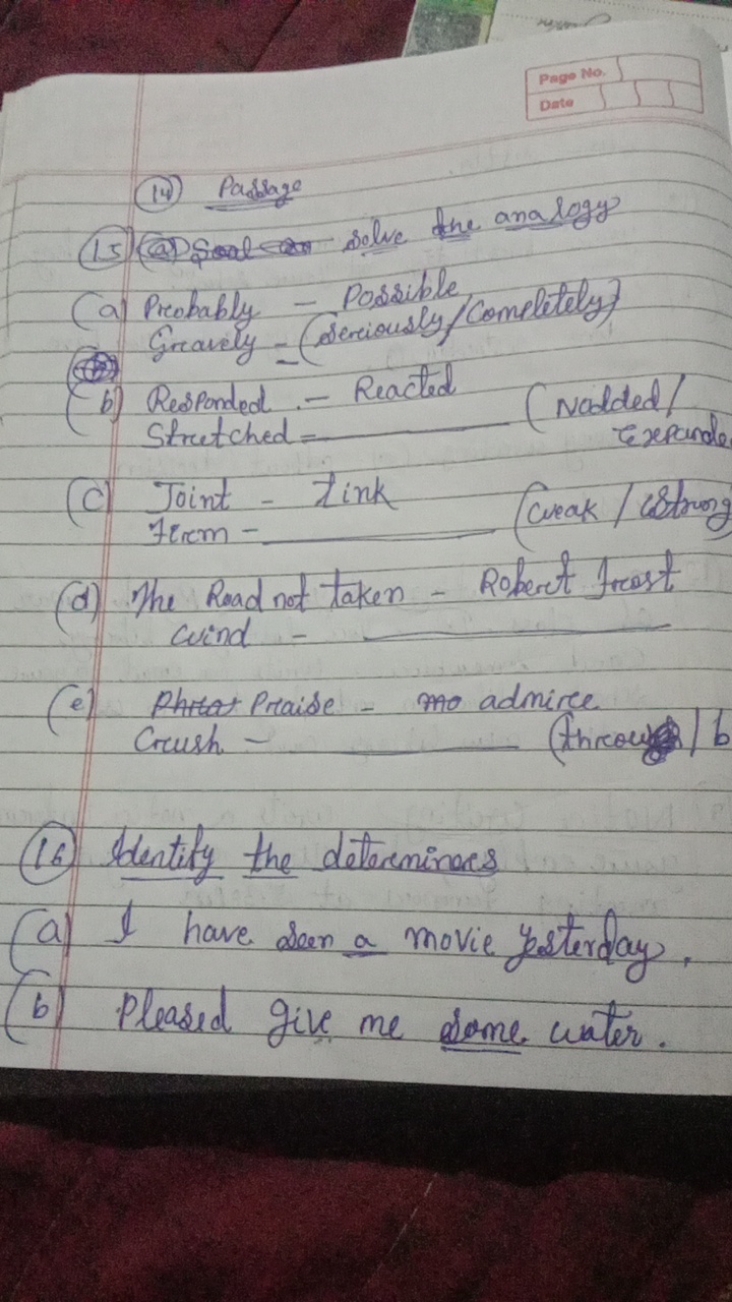 Page No.
Date
(14) Passage
(15) solve the analogy
(a) Probably - Possible
Gravely - (Seriously/Completely)
(b) Responded - Reacted
Stretched = ________ (Nodded/
Expande
(c) Joint - Link
Firm - ________ (weak / strong
(d) The Road not taken - Robert Frost
Wind - ________
(e) Praise - admire
Crush - ________ (throw / b
(16) Identify the determiners
(a) I have seen a movie yesterday.
(b) Pleased give me some water.